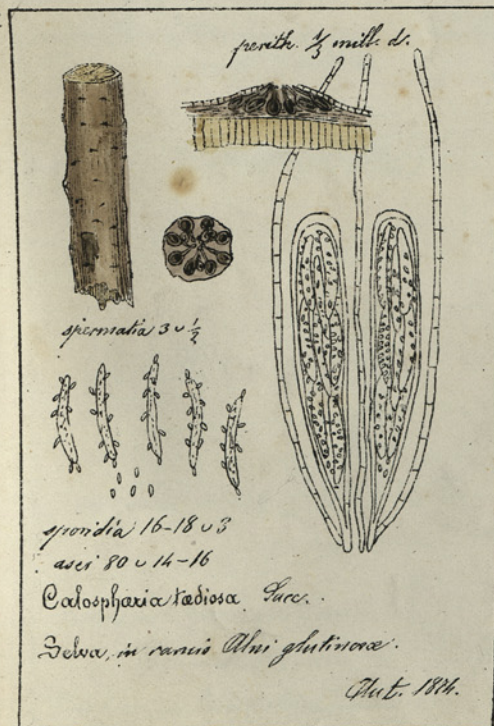 perith. 1/3 mill. d.
spermatia 3 ᴗ 1/2
sporidia 16-18 ᴗ 3
asci 80 ᴗ 14-16
Calosphæria tædiosa Sacc.
Selva, in ramis Alni glutinosæ.
1874.